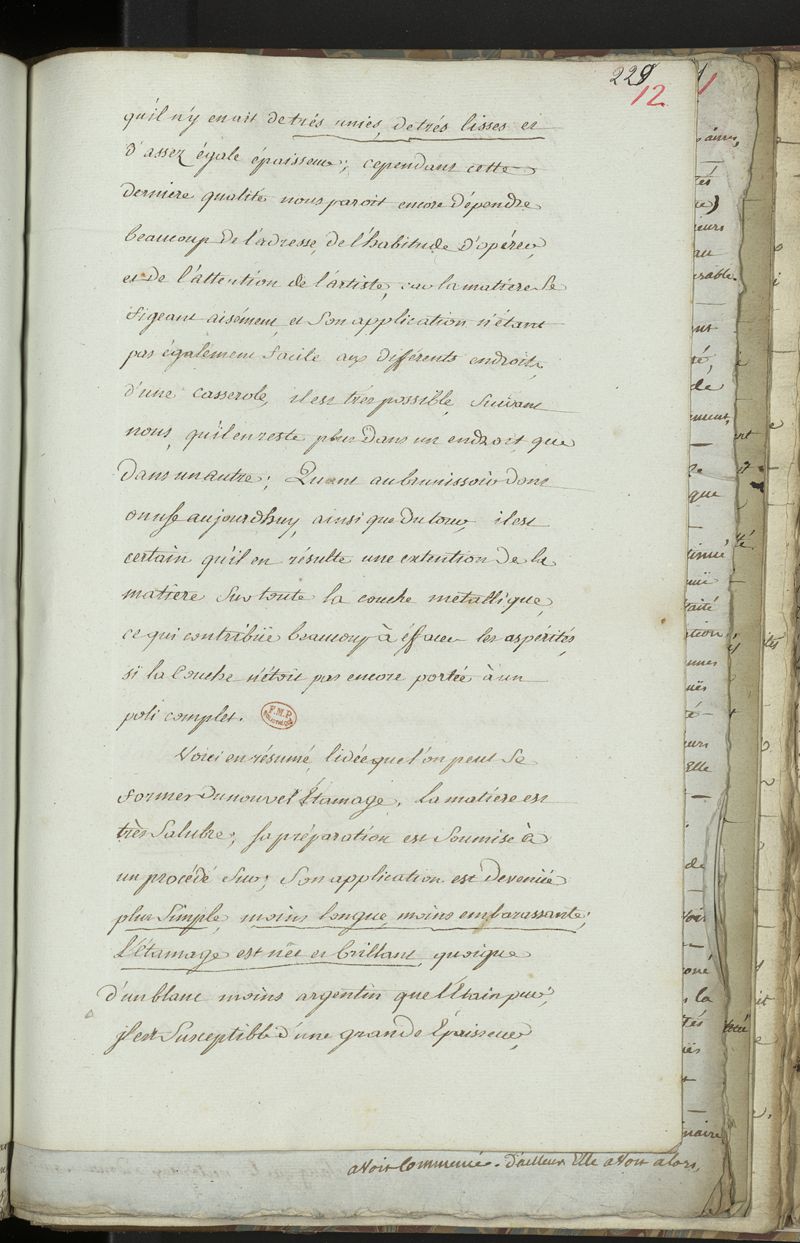 229
12
qu'il n'y en ait de très unies, de très lisses et
d'assez égale épaisseur; cependant cette
derniere qualité nous paroit encore dépendre
beaucoup de l'adresse, de l'habitude d'opérer,
et de l'attention de l'artiste, car la matiere se
figeant aisément et son application n'étant
pas également facile aux différents endroits
d'une casserole, il est très possible, suivant
nous, qu'il en reste plus dans un endroit que
dans un autre; Quant au brunissoir dont
on use aujourdhuy, ainsi que du tour, il est
certain qu'il en résulte une extention de la
matiere sur toute la couche métallique,
ce qui contribüe beaucoup à éffacer les aspérités,
si la Couche n'étoit pas encore portée à un
poli complet.
F.M.P.
Voici en résumé, l'idée que l'on peut se
former du nouvel Étamage, la matiere est
très Salubre; sa préparation est soumise à
un procédé sur; son application est devenüe
plus simple, moins longue, moins embarassante;
l'étamage est nèt et brillant, quoique
d'un blanc moins argentin que l'Étain pur;
il est susceptible d'une grande Épaisseur,
avoit Commencé. d'ailleurs Elle avoit alors,